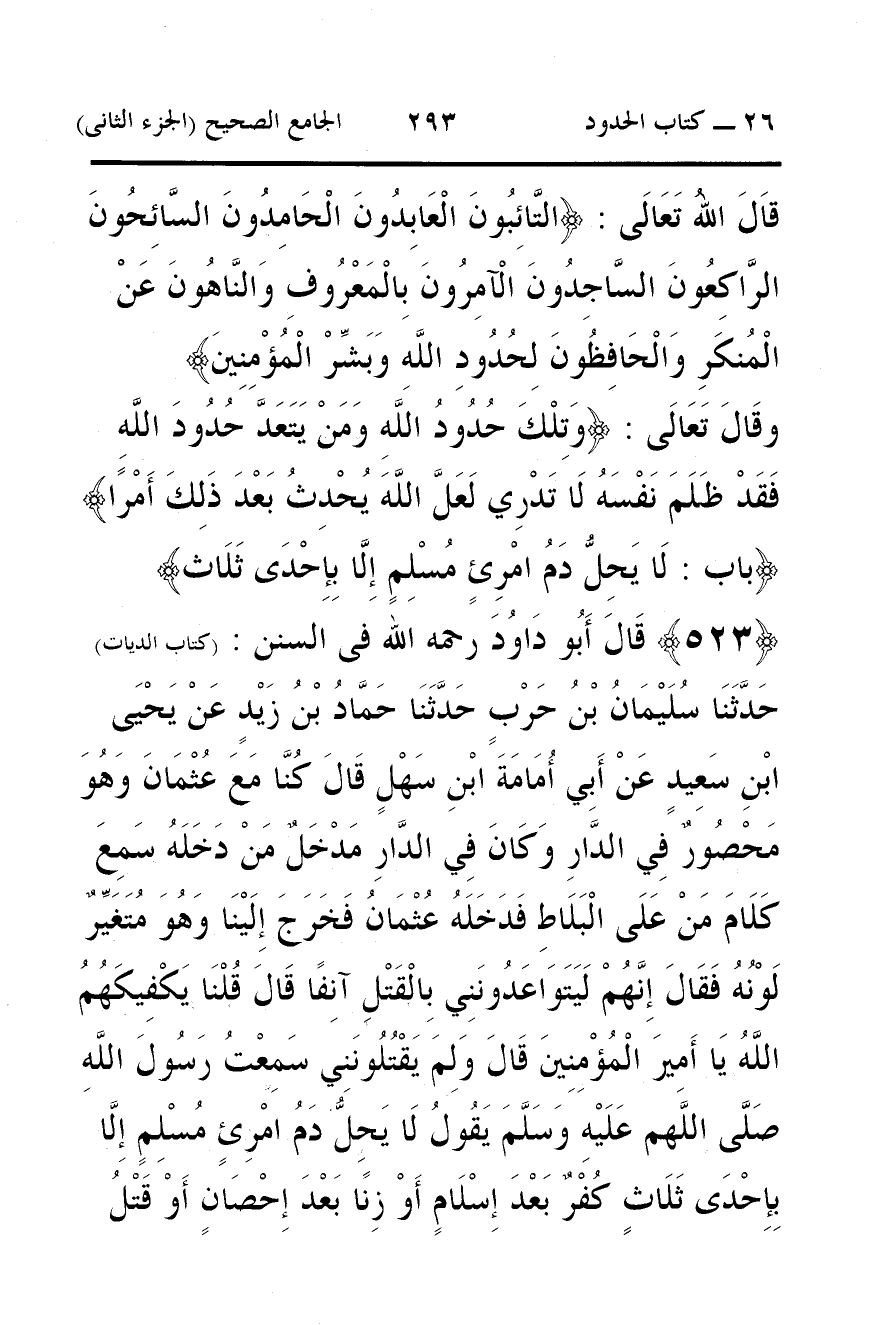 ٢٦ ــ كتاب الحدود ٢٩٣ الجامع الصحيح (الجزء الثانى)
قَالَ اللهُ تَعَالَى : ﴿التَّائِبُونَ الْعَابِدُونَ الْحَامِدُونَ السَّائِحُونَ
الرَّاكِعُونَ السَّاجِدُونَ الْآمِرُونَ بِالْمَعْرُوفِ وَالنَّاهُونَ عَنْ
الْمُنكَرِ وَالْحَافِظُونَ لِحُدُودِ اللَّهِ وَبَشِّرْ الْمُؤْمِنِينَ﴾
وقَالَ تَعَالَى : ﴿وَتِلْكَ حُدُودُ اللَّهِ وَمَنْ يَتَعَدَّ حُدُودَ اللَّهِ
فَقَدْ ظَلَمَ نَفْسَهُ لَا تَدْرِي لَعَلَّ اللَّهَ يُحْدِثُ بَعْدَ ذَلِكَ أَمْرًا﴾
﴿باب : لَا يَحِلُّ دَمُ امْرِئٍ مُسْلِمٍ إِلَّا بِإِحْدَى ثَلَاث﴾
﴿٥٢٣﴾ قَالَ أَبُو دَاوُدَ رحمه الله فى السنن : (كتاب الديات)
حَدَّثَنَا سُلَيْمَانُ بْنُ حَرْبٍ حَدَّثَنَا حَمَّادُ بْنُ زَيْدٍ عَنْ يَحْيَى
ابْنِ سَعِيدٍ عَنْ أَبِي أُمَامَةَ ابْنِ سَهْلٍ قَالَ كُنَّا مَعَ عُثْمَانَ وَهُوَ
مَحْصُورٌ فِي الدَّارِ وَكَانَ فِي الدَّارِ مَدْخَلٌ مَنْ دَخَلَهُ سَمِعَ
كَلَامَ مَنْ عَلَى الْبَلَاطِ فَدَخَلَهُ عُثْمَانُ فَخَرَجَ إِلَيْنَا وَهُوَ مُتَغَيِّرٌ
لَوْنُهُ فَقَالَ إِنَّهُمْ لَيَتَوَاعَدُونَنِي بِالْقَتْلِ آنِفًا قَالَ قُلْنَا يَكْفِيكَهُمُ
اللَّهُ يَا أَمِيرَ الْمُؤْمِنِينَ قَالَ وَلِمَ يَقْتُلُونَنِي سَمِعْتُ رَسُولَ اللَّهِ
صَلَّى اللَّهم عَلَيْهِ وَسَلَّمَ يَقُولُ لَا يَحِلُّ دَمُ امْرِئٍ مُسْلِمٍ إِلَّا
بِإِحْدَى ثَلَاثٍ كُفْرٌ بَعْدَ إِسْلَامٍ أَوْ زِنًا بَعْدَ إِحْصَانٍ أَوْ قَتْلُ